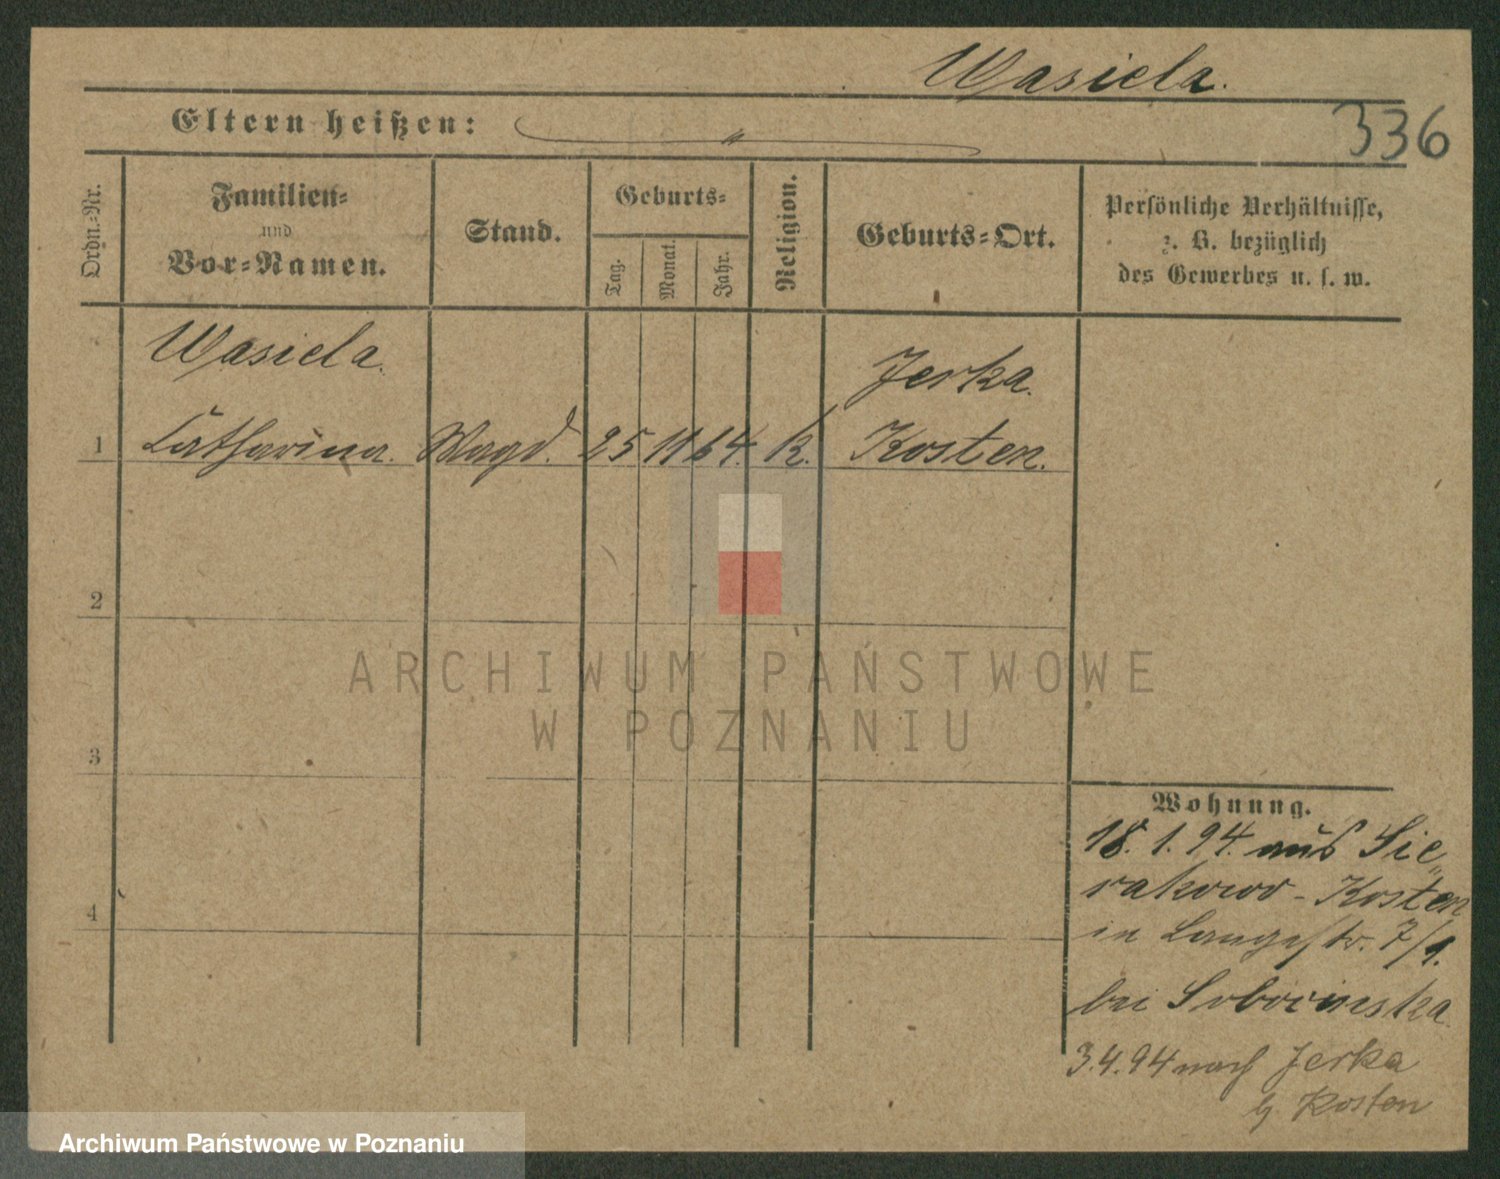 Wasiela.
336
Eltern heißen: "
Ordn.-Nr.
Familien-
und
Vor-Namen.
Stand.
Geburts-
Tag.
Monat.
Jahr.
Religion.
Geburts-Ort.
Persönliche Verhältnisse,
z. B. bezüglich
des Gewerbes u. s. w.
Wasiela.
Jerka.
1 Catharina. Magd. 25 11 64. k. Kosten.
2
3
4
Wohnung.
18. 1. 94. aus Sie-
rakowo - Kosten
in Langestr. 7/
bei
3.4.94 nach Jerka
b/ Kosten
ARCHIWUM PAŃSTWOWE
W POZNANIU
Archiwum Państwowe w Poznaniu